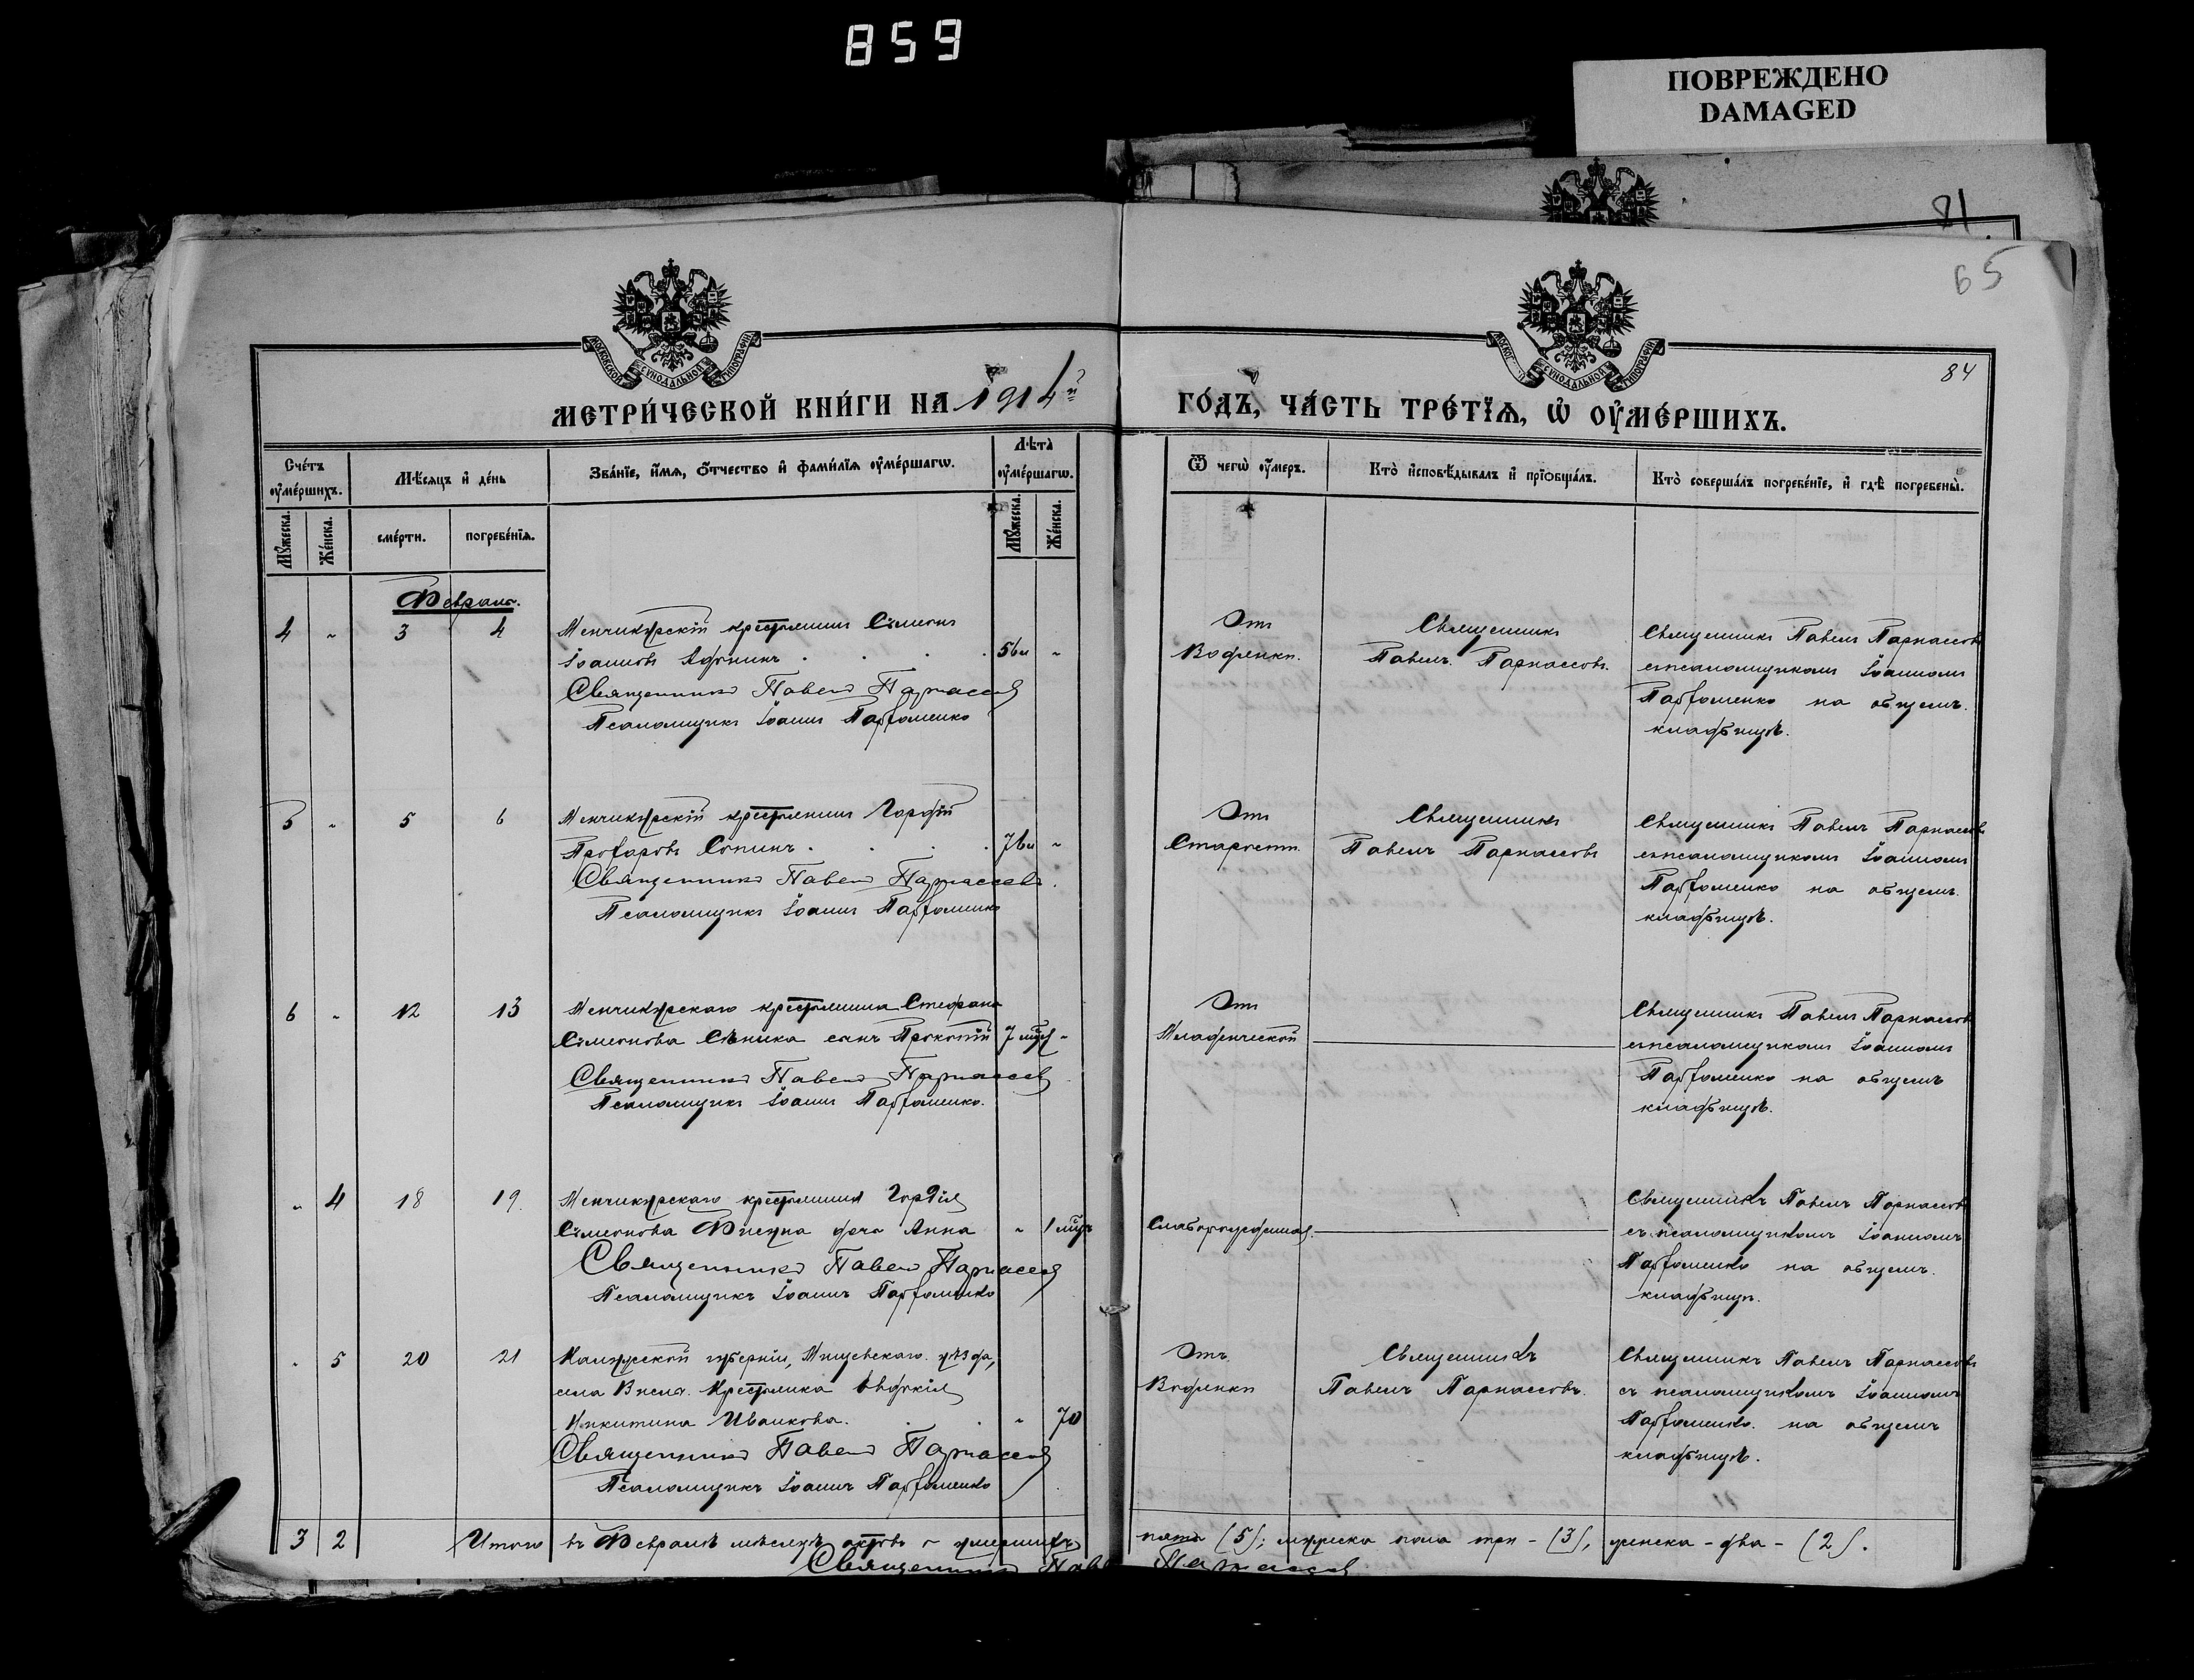 859
ПОВРЕЖДЕНО
DAMAGED
81
65
84
МОСКОВСКОЙ СУНОДАЛЬНОЙ ТИПОГРАФІИ
СУНОДАЛЬНОЙ ТИПОГРАФІИ
МЕТРИ́ЧЕСКОЙ КНИ́ГИ НА 1914й
ГО́ДЪ, ЧА́СТЬ ТРЕ́ТІѦ, Ѡ҆ ОУ҆МЕ́РШИХЪ.
Сче́тъ оу҆ме́ршихъ.
Мѣ́сяцъ и҆ де́нь
Зва́нїе, и҆́мѧ, ѻ҆́тчество и҆ фами́лїѧ оу҆ме́ршагѡ.
Лѣ́та оу҆ме́ршагѡ.
Ѿ чегѡ̀ оу҆́меръ.
Кто̀ и҆сповѣ́дывалъ и҆ прїѡбща́лъ.
Кто̀ соверша́лъ погребе́нїе, и҆ гдѣ̀ погребены̀.
Мꙋ́жеска.
Же́нска.
сме́рти.
погребе́нїѧ.
Мꙋ́жеска.
Же́нска.
Февраль.
4 „ 3 4 Менчикурскій крестьянинъ Симеонъ
Іоанновъ Афонинъ . . . . 56 л „
Священникъ Павелъ Парнассовъ
Псаломщикъ Іоаннъ Парфоменко
Отъ
Водянки.
Священникъ
Павелъ Парнассовъ.
Священникъ Павелъ Парнассовъ
съ псаломщикомъ Іоанномъ
Парфоменко на общемъ
кладбищѣ.
5 „ 5 6 Менчикурскій крестьянинъ Гордій
Сопинъ . . . . 76 л „
Священникъ Павелъ Парнассовъ.
Псаломщикъ Іоаннъ Парфоменко
Отъ
Старости.
Священникъ
Павелъ Парнассовъ
Священникъ Павелъ Парнассовъ
съ псаломщикомъ Іоанномъ
Парфоменко на общемъ
кладбищѣ.
6 „ 12 13 Менчикурскаго крестьянина Стефана
Симеонова Сѣника сынъ Прокопій 7 мѣс „
Священникъ Павелъ Парнассовъ
Псаломщикъ Іоаннъ Парфоменко.
Отъ
Младенческой
Священникъ Павелъ Парнассовъ
съ псаломщикомъ Іоанномъ
Парфоменко на общемъ
кладбищѣ.
„ 4 18 19. Менчикурскаго крестьянина Гордія
Симеонова дочь Анна „ 1 мѣс
Священникъ Павелъ Парнассовъ
Псаломщикъ Іоаннъ Парфоменко
Слаборожденная.
Священникъ Павелъ Парнассовъ
съ псаломщикомъ Іоанномъ
Парфоменко на общемъ
кладбищѣ.
„ 5 20 21 Калужской губерніи, Мещевскаго уѣзда,
села крестьянка Евдокія
Никитина Иванкова. . . „ 70
Священникъ Павелъ Парнассовъ
Псаломщикъ Іоаннъ Парфоменко
Отъ
Водянки
Священникъ
Павелъ Парнассовъ.
Священникъ Павелъ Парнассовъ
съ псаломщикомъ Іоанномъ
Парфоменко. на общемъ
кладбищѣ.
3 2 Итого въ Февралѣ мѣсяцѣ умершихъ пять (5); мужеска пола три - (3), женска - два - (2).
Священникъ Павелъ Парнассовъ